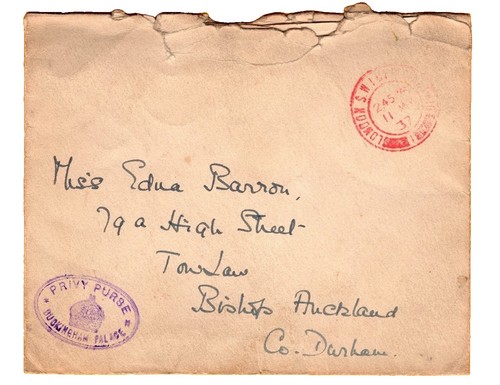 LONDON S.W.1
245 PM
11 MY
37
Miss Edna Barron,
79a High Street
Tow Law
Bishop Auckland
Co. Durham.
PRIVY PURSE
BUCKINGHAM PALACE